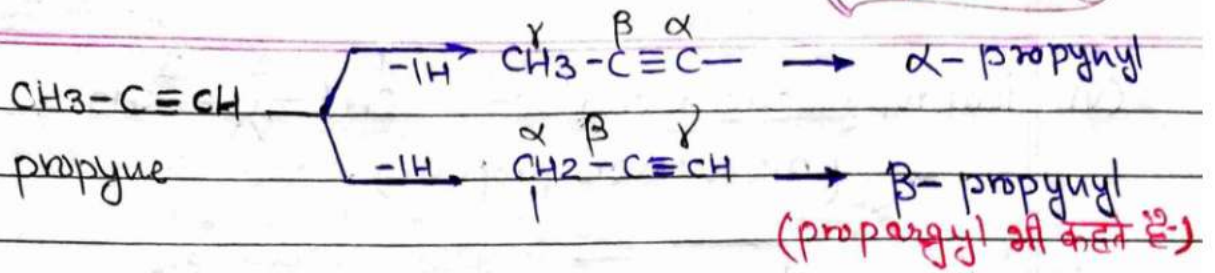 γ β α
CH3-C≡C— → α- propynyl
-1H
CH3-C≡CH
α β γ
propyne -1H CH2-C≡CH → β- propynyl
(propargyl भी कहते है-)